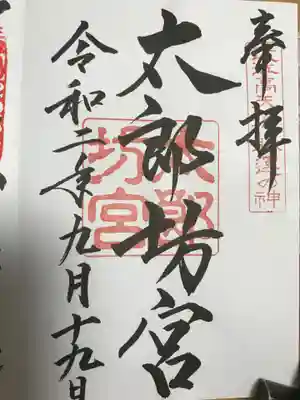 奉拝
太郎坊宮
令和二年九月十九日
太郎
坊宮